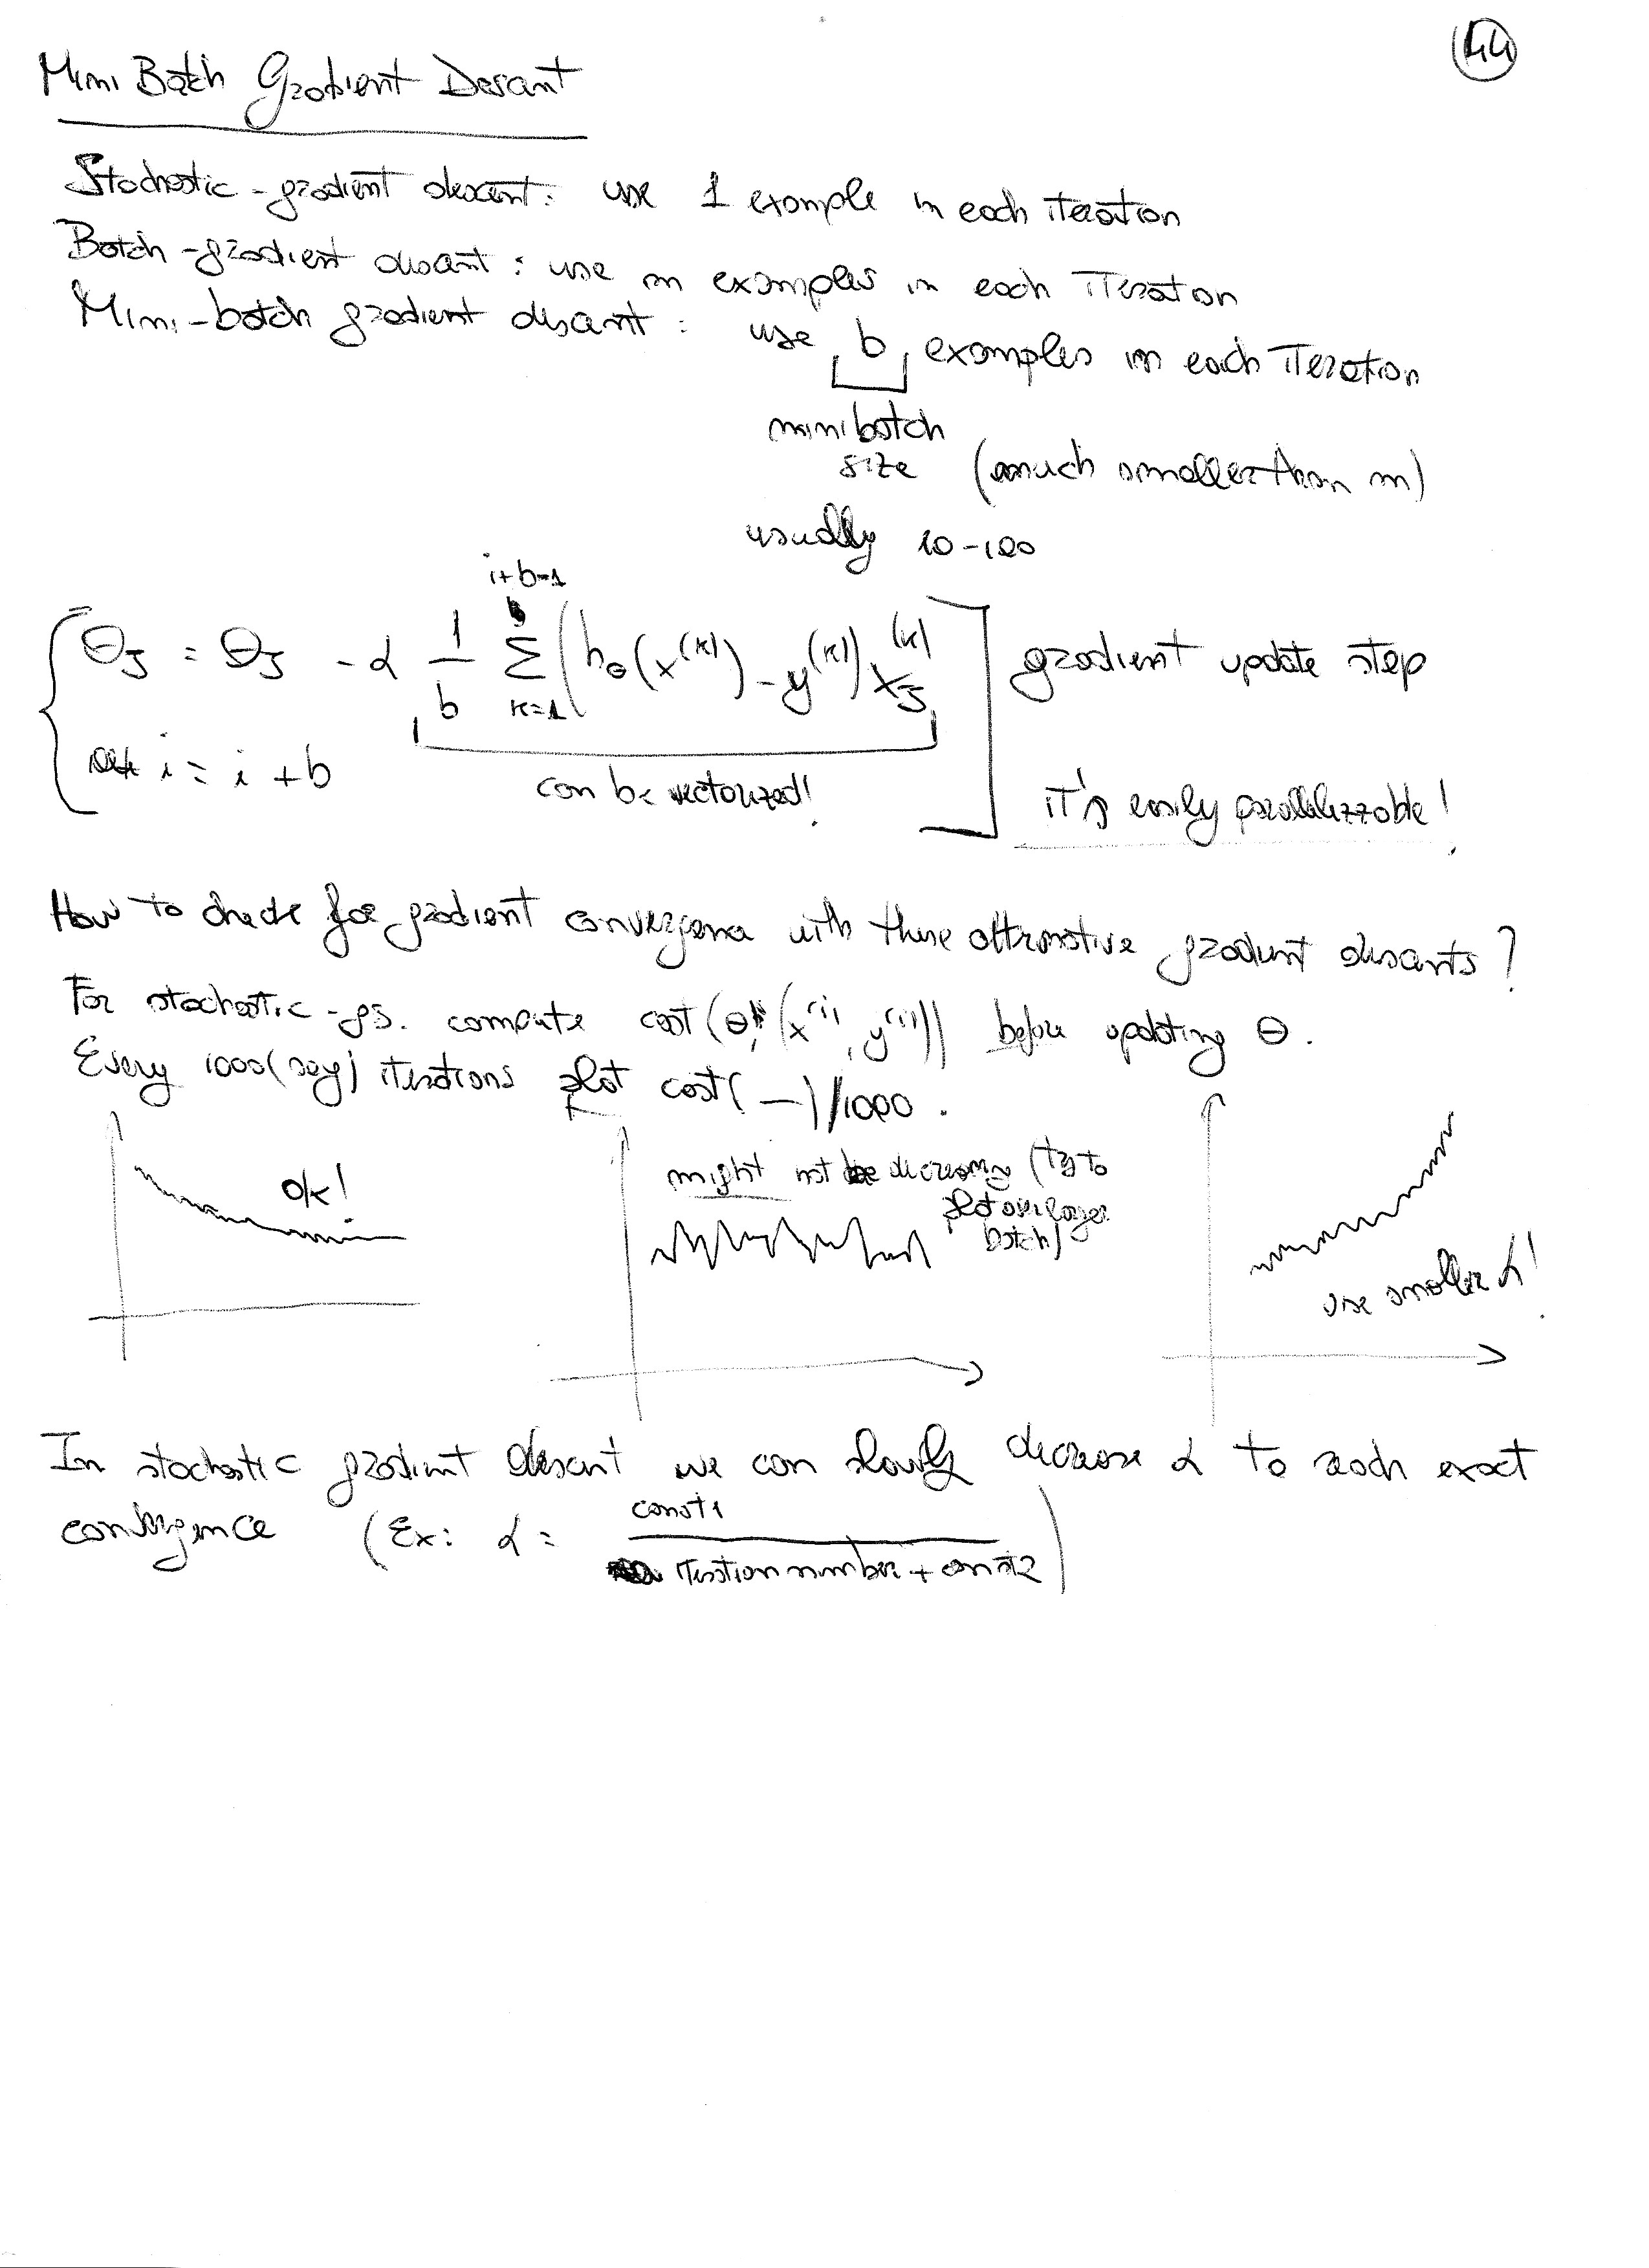 44
Mini Batch Gradient Descent
Stochastic-gradient descent: use 1 example in each iteration
Batch-gradient descent: use m examples in each iteration
Mini-batch gradient descent: use b examples in each iteration
mini batch
size (much smaller than m)
usually 10-100
{ θj = θj - α 1/b Σ_{k=1}^{i+b-1} (hθ(x^(k)) - y^(k)) xj^(k) ] gradient update step
i = i + b
can be vectorized! it's easily parallelizzable!
How to check for gradient convergence with these alternative gradient descents?
For stochastic-gd. compute cost(θ, (x^(i), y^(i))) before updating θ.
Every 1000 (say) iterations plot cost(—)/1000.
ok!
might not be decreasing (try to
plot over larger
batch)
use smaller α!
In stochastic gradient descent we can slowly decrease α to reach exact
convergence (Ex: α = const1 / iteration number + const2)